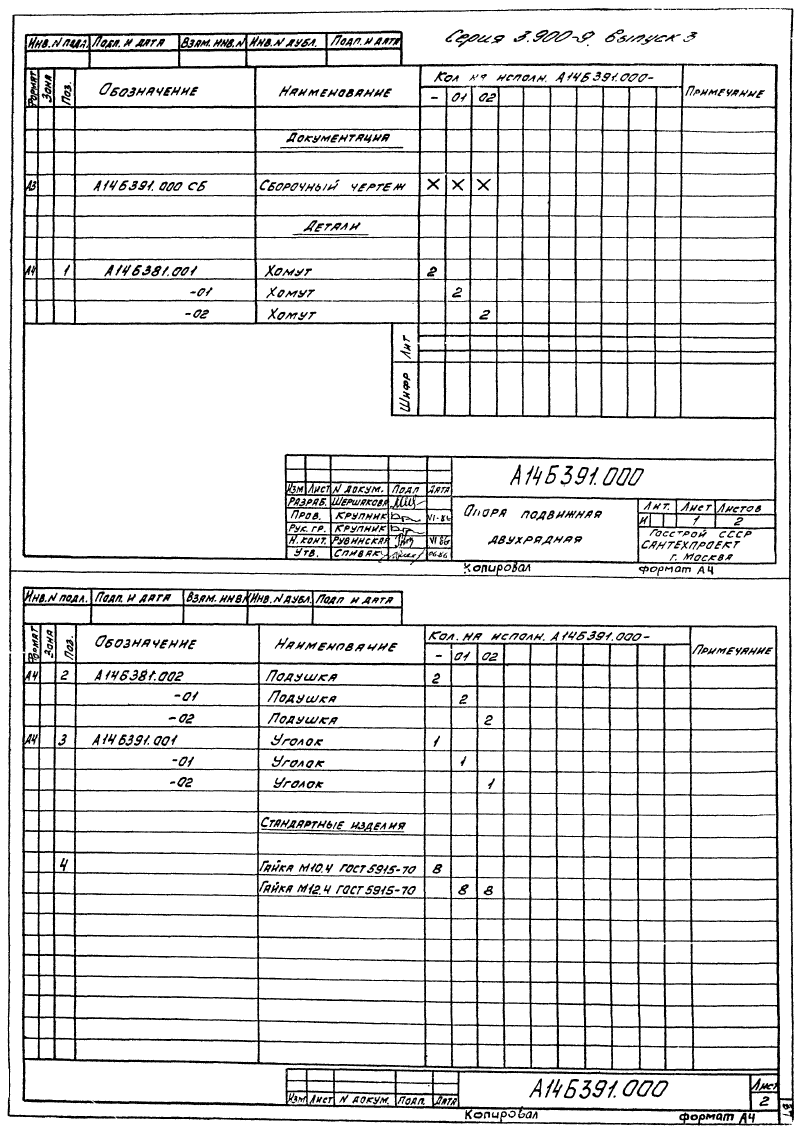 Серия 3.900-9. Выпуск 3
Инв. N подл. Подп. и дата Взам. инв. N Инв. N дубл. Подп. и дата
Формат Зона Поз. Обозначение Наименование Кол. на исполн. А14Б391.000- Примечание
- 01 02
Документация
А3 А14Б391.000 СБ Сборочный чертеж X X X
Детали
А4 1 А14Б381.001 Хомут 2
-01 Хомут 2
-02 Хомут 2
Лит
Шифр
А14Б391.000
Изм Лист N докум. Подп Дата
Разраб. Шершакова
Пров. Крупник VI-86
Рук. гр. Крупник
Н. конт. Рувинская VI 86
Утв. Спивак 06.86
Опора подвижная
двухрядная
Лит. Лист Листов
И 1 2
Госстрой СССР
Сантехпроект
г. Москва
Копировал формат А4
Инв. N подл. Подп. и дата Взам. инв. N Инв. N дубл. Подп и дата
Формат Зона Поз. Обозначение Наименование Кол. на исполн. А14Б391.000- Примечание
- 01 02
А4 2 А14Б381.002 Подушка 2
-01 Подушка 2
-02 Подушка 2
А4 3 А14Б391.001 Уголок 1
-01 Уголок 1
-02 Уголок 1
Стандартные изделия
4 Гайка М10.4 ГОСТ 5915-70 8
Гайка М12.4 ГОСТ 5915-70 8 8
Изм Лист N докум. Подп. Дата
А14Б391.000
Лист
2
Копировал формат А4